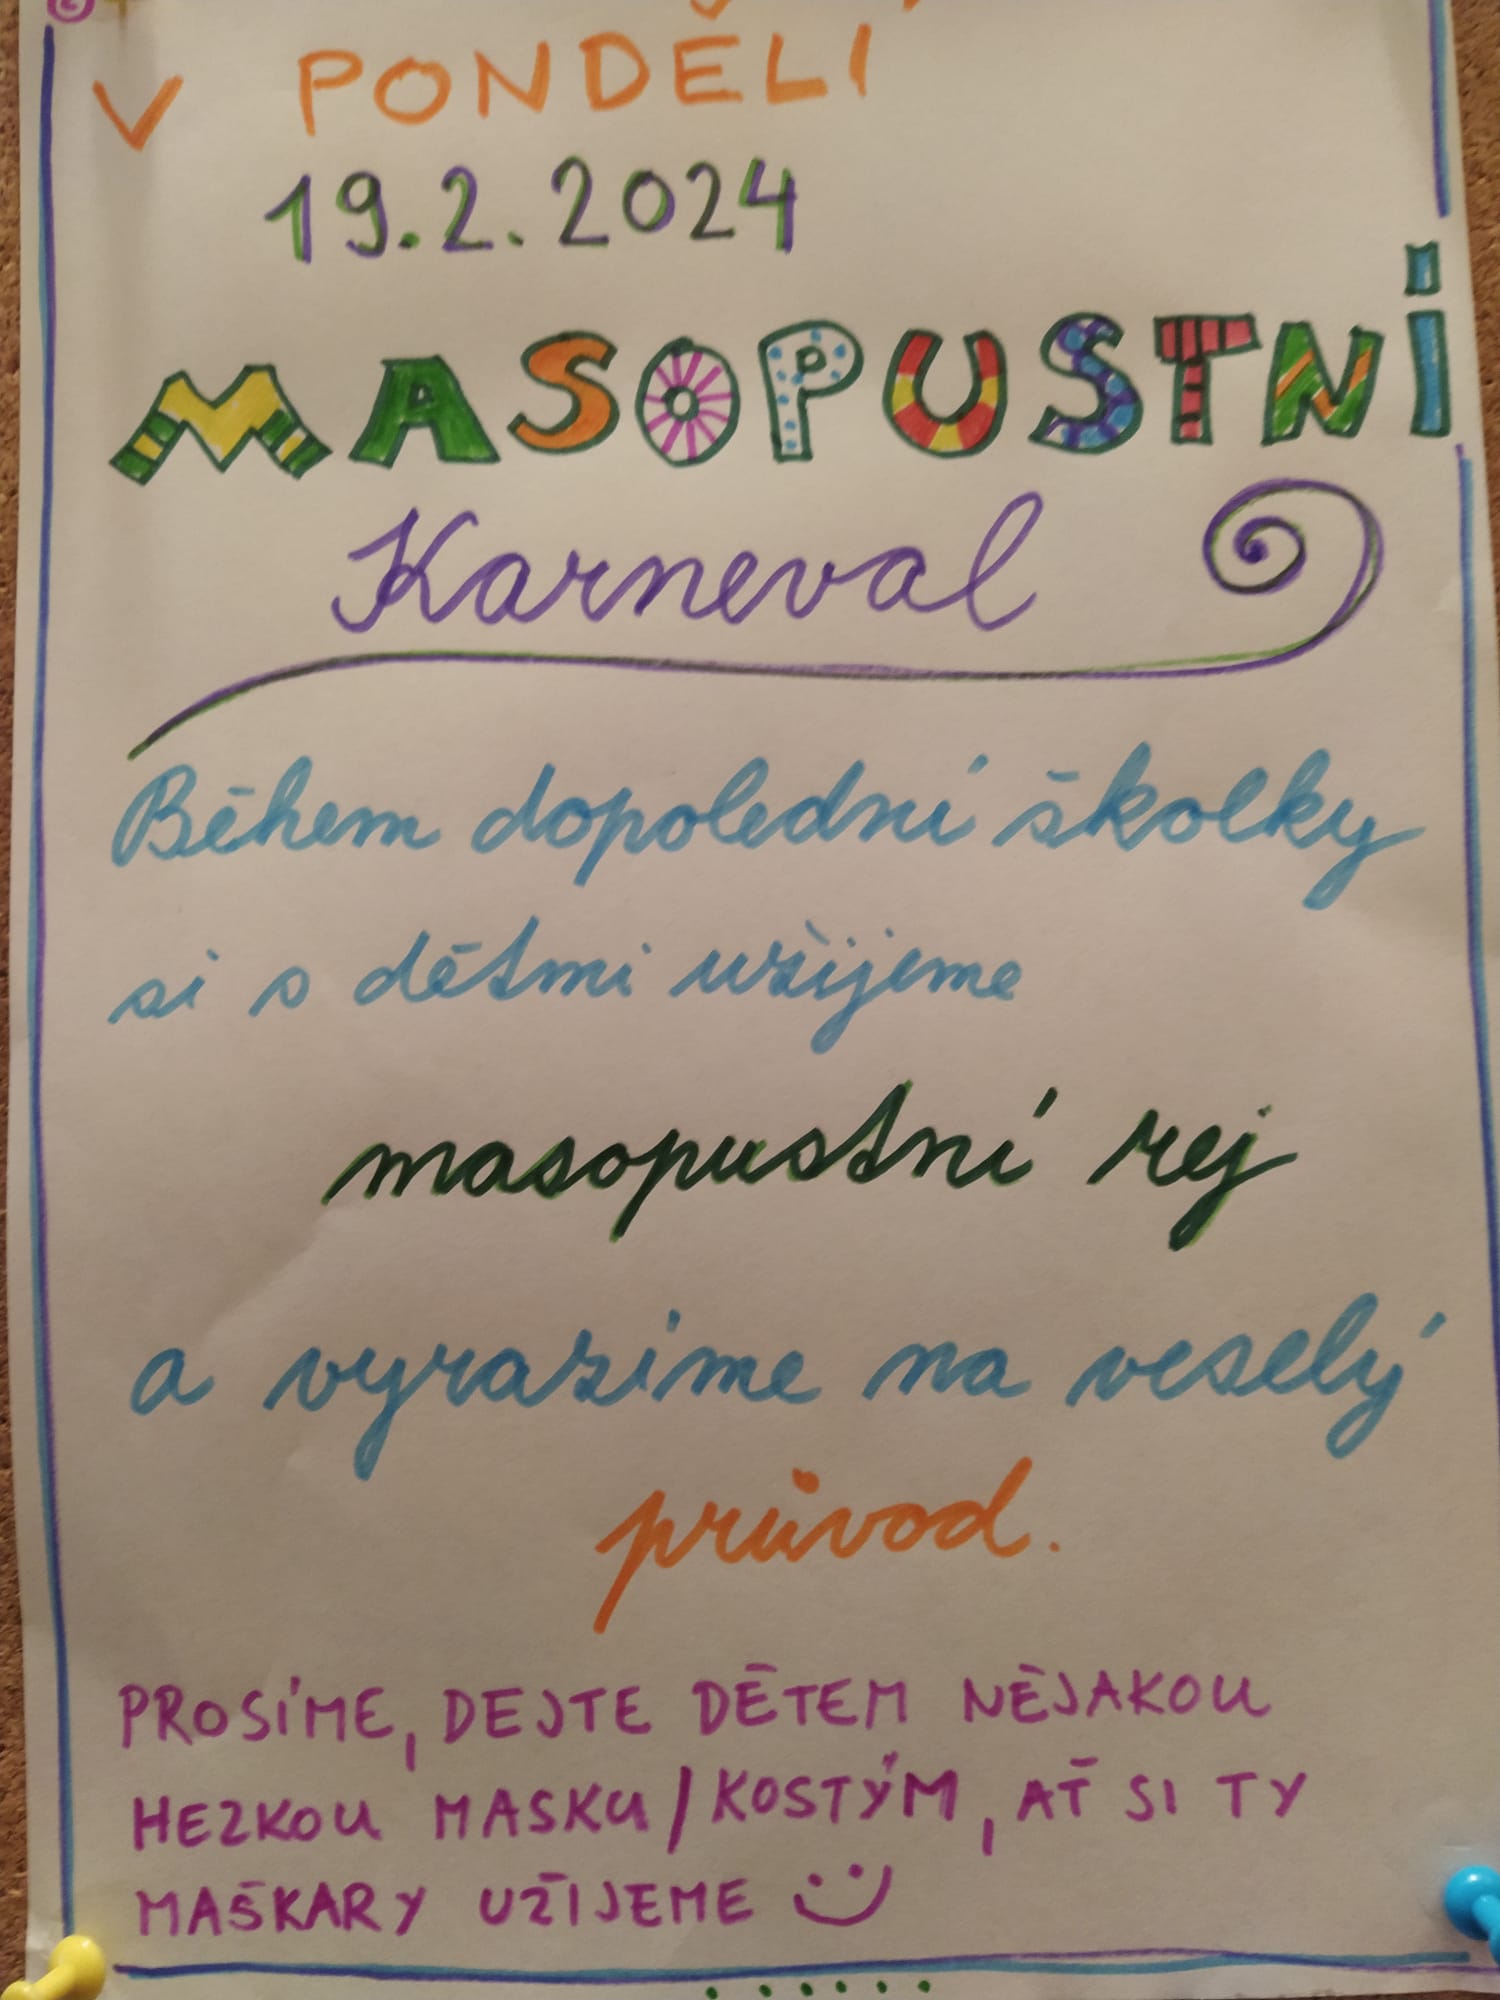 V PONDĚLÍ
19.2.2024
MASOPUSTNÍ
Karneval
Během dopolední školky
si s dětmi užijeme
masopustní rej
a vyrazíme na veselý
průvod.
PROSÍME, DEJTE DĚTEM NĚJAKOU
HEZKOU MASKU/KOSTÝM, AŤ SI TY
MAŠKARY UŽIJEME